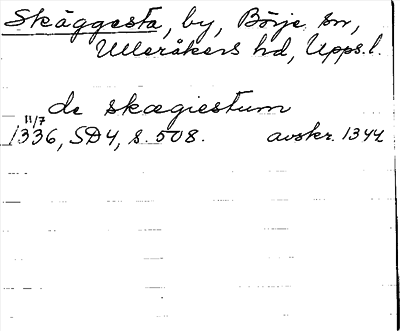 Skäggesta, by, Börje sn,
Ulleråkers hd, Upps. l.
de skægiestum
11/7
1336, SD4, s. 508. avskr. 1344